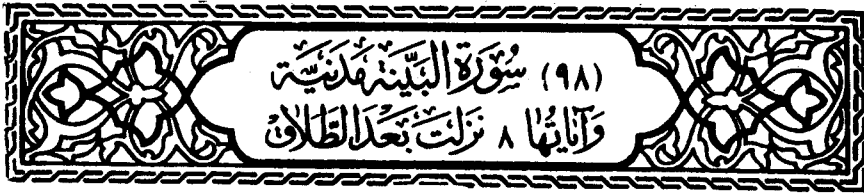 (٩٨) سُورَةِ البَيِّنَةِ مَدنيَّة
وَآيَاتُهَا ٨ نَزَلَتْ بَعَدَ الطَّلَاق